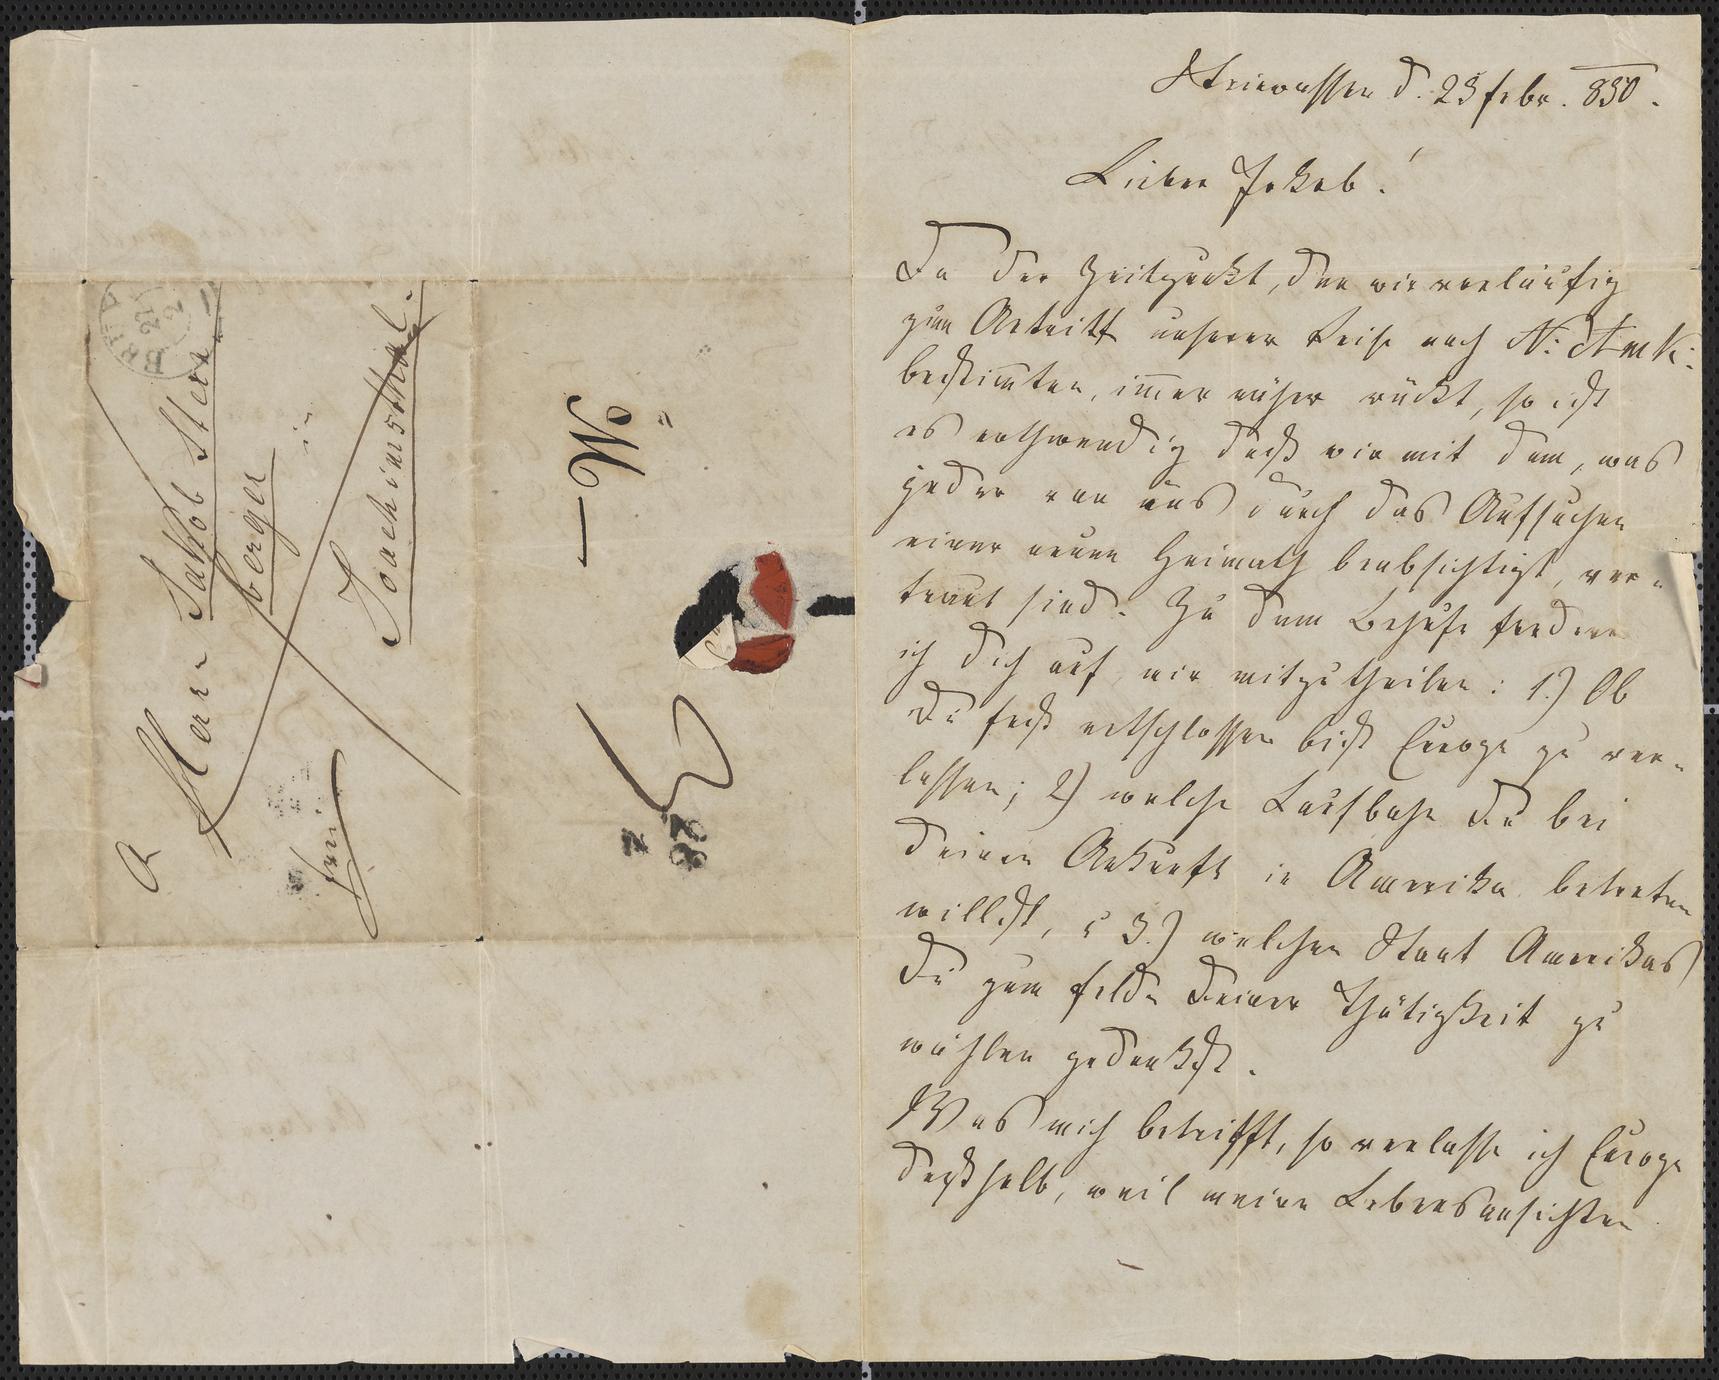 Herrn Jakob Stern
berger
in
Joachimsthal.
frei
—W
28
2
Steinwasser d. 25 febr. 850.
Lieber Jakob!
Da der Zeitpunkt, den wir vorläufig
zum Antritt unserer Reise nach N: Amk:
bestim̅ten, im̅er näher rückt, so ist
es nothwendig daß wir mit dem, was
jeder von uns durch das Aufsuchen
einer neuen Heimath beabsichtigt, ver-
traut sind. Zu dem Behufe fordere
ich dich auf mir mitzutheilen: 1.) Ob
Du fest entschlossen bist Europa zu ver-
lassen; 2) welche Laufbahn Du bei
Deiner Ankunft in Amerika betreten
willst, u 3.) welchen Staat Amerikas
Du zum Felde Deiner Thätigkeit zu
wählen gedenkst.
Was mich betrifft, so verlasse ich Europa
deßhalb, weil meine Lebensansichten